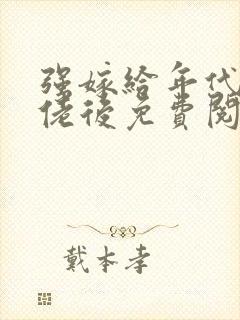 强嫁给年代
佬后免費閱
戴本孝